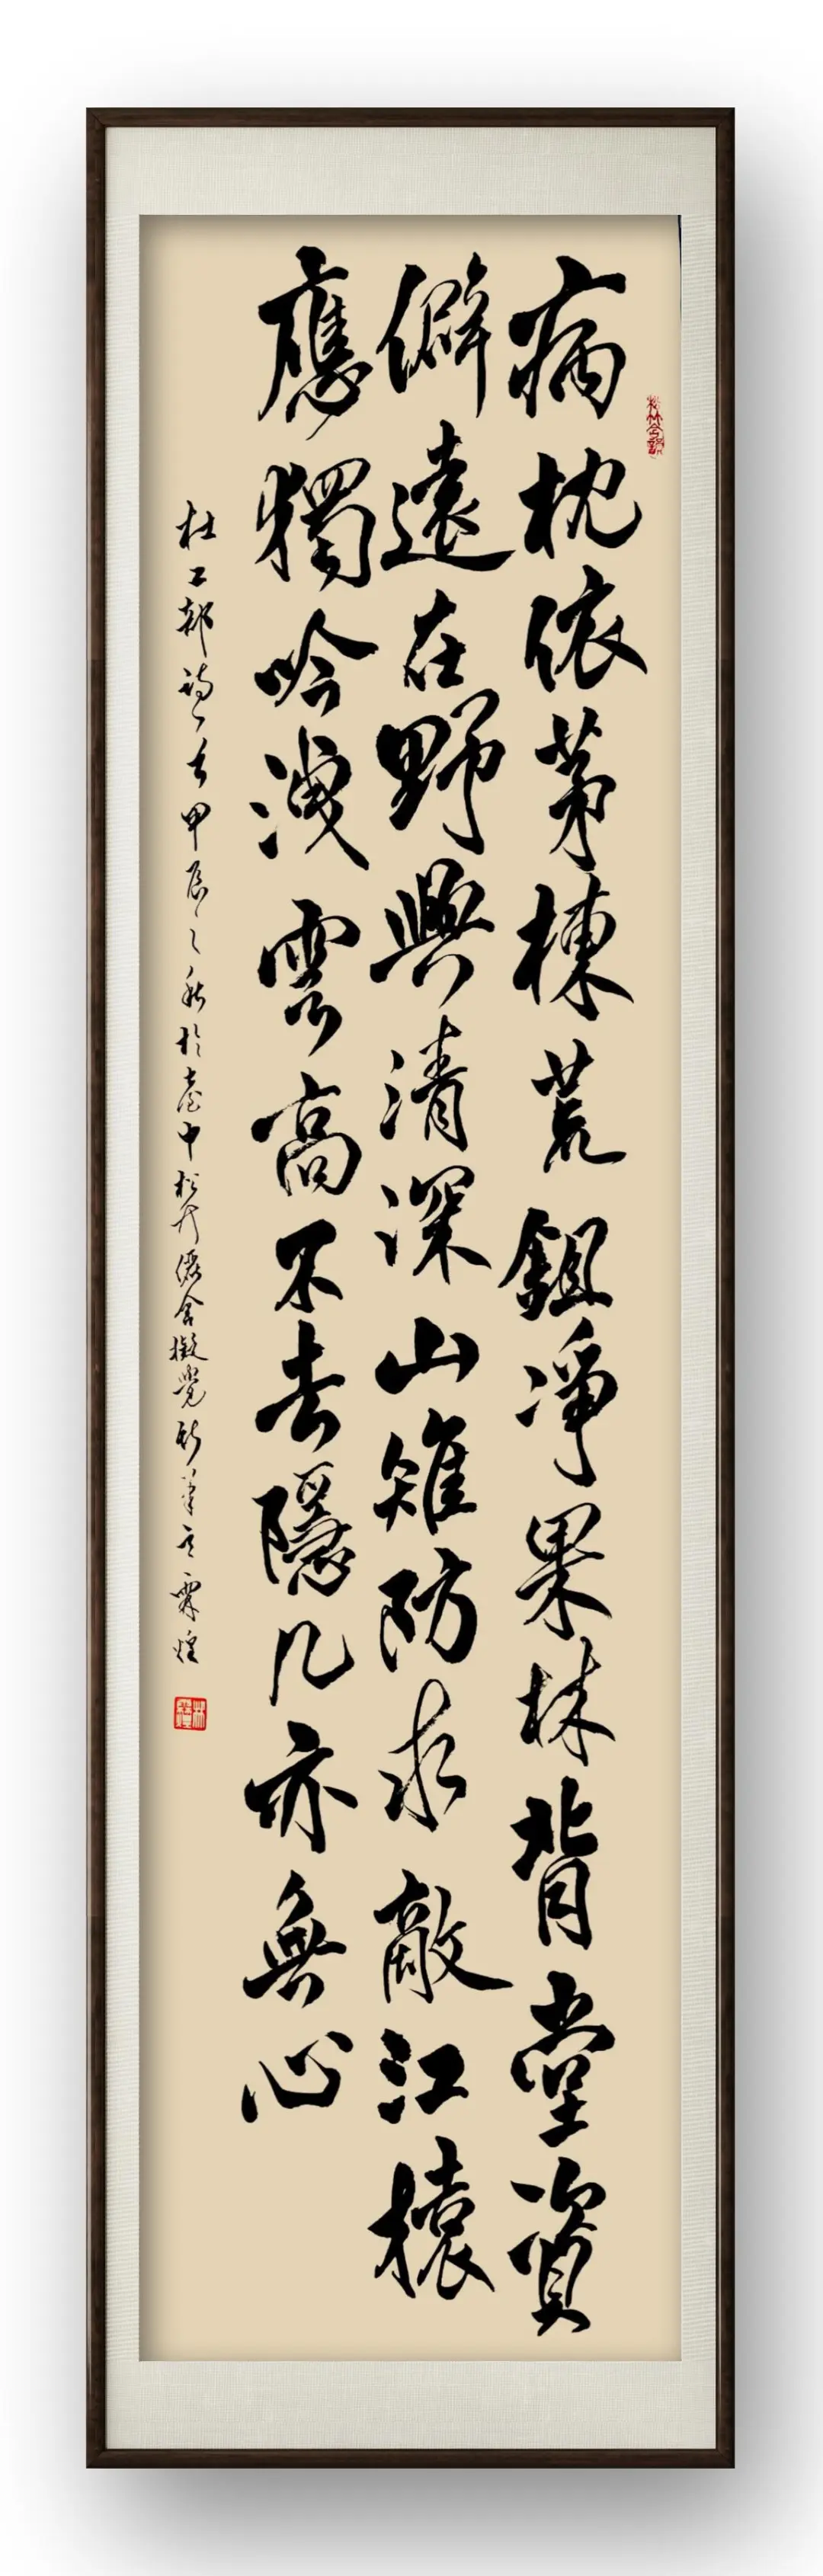 病枕依茅棟荒鉏淨果林背堂資
僻遠在野興清深山雉防求敵江猿
應獨吟洩雲高不去隱几亦無心
杜工部詩一首甲辰之秋於臺中松竹舍擬覺斯筆意霖煌